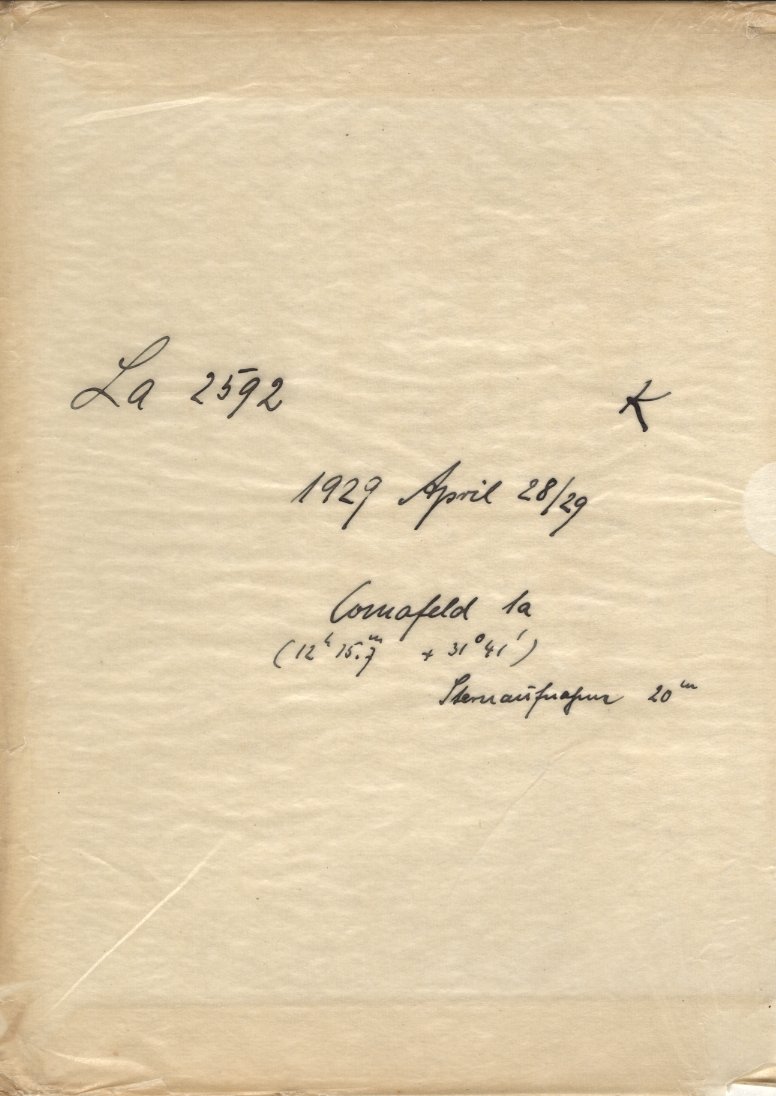 La 2592 K
1929 April 28/29
Comafeld 1a
(12ʰ 15.7ᵐ + 31° 41′)
Sternaufnahme 20ᵐ